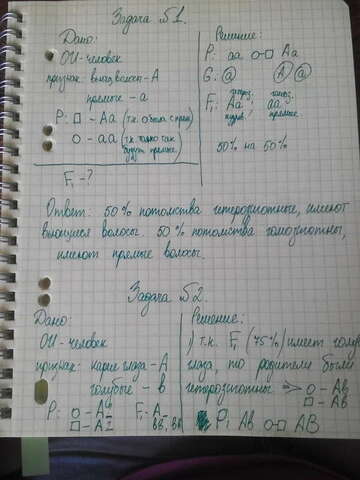 Задача №1.
Дано:
ОИ-человек
признак: вьющ. волосы - А
прямые - а
P: □ - Аа (т.к.
○ - аа (т.к. только так
будут прямые)
F₁ - ?
Решение:
P: аа ○-□ Аа
G: а А а
F₁: Аа; аа
прямые
50% на 50%
Ответ: 50% потомства гетерозиготные, имеют
вьющиеся волосы. 50% потомства гомозиготны,
имеют прямые волосы.
Задача №2.
Дано:
ОИ-человек
признак: карие глаза - А
голубые - в
P: ○ - А
□ - А
F₁ - А
Решение:
1) т.к. F₁ (75%) имеет
глаза, то родители были
гетерозиготные => ○ - Ав
□ - Ав
P₁ Ав ○-□ АВ